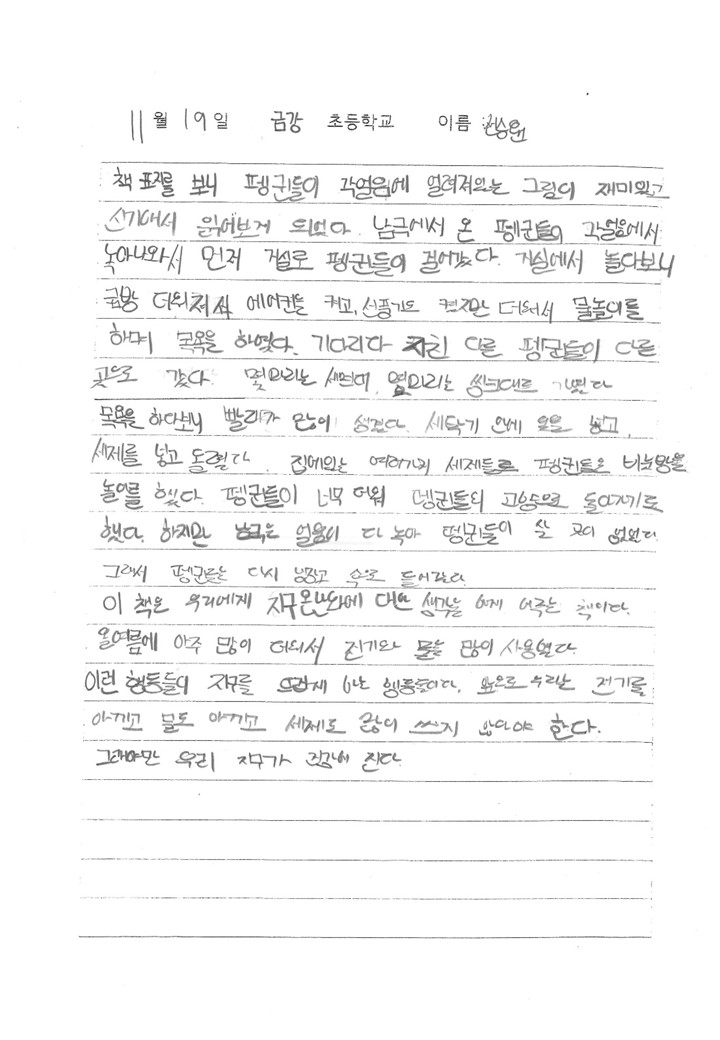 11월 19일 금강 초등학교 이름
책 표지를 보니 펭귄들이 각얼음에 얼려져있는 그림이 재미있고
신기해서 읽어보게 되었다. 남극에서 온 펭귄들이 각얼음에서
녹아나와서 먼저 거실로 펭귄들이 걸어갔다. 거실에서 놀다보니
금방 더워져서 에어컨을 켜고, 선풍기도 켰지만 더워서 물놀이를
하며 목욕을 하였다. 기다리다 지친 다른 펭귄들이 다른
곳으로 갔다. 몇마리는 세면대, 몇마리는 씽크대로 갔다
목욕을 하다보니 빨래가 많이 생겼다. 세탁기 안에 옷을 넣고,
세제를 넣고 돌렸다. 집에있는 여러가지 세제들로 펭귄들은 비눗방울
놀이를 했다. 펭귄들이 너무 더워 펭귄들의 고향으로 돌아가기로
했다. 하지만 남극은 얼음이 다 녹아 펭귄들이 살 곳이 없었다.
그래서 펭귄들은 다시 냉장고 속으로 들어갔다.
이 책은 우리에게 지구온난화에 대한 생각을 하게 해주는 책이다.
올여름에 아주 많이 더워서 전기와 물을 많이 사용했다.
이런 행동들이 지구를 뜨겁게 하는 행동들이다. 앞으로 우리는 전기를
아끼고 물도 아끼고 세제도 많이 쓰지 않아야 한다.
그래야만 우리 지구가 건강해 진다.